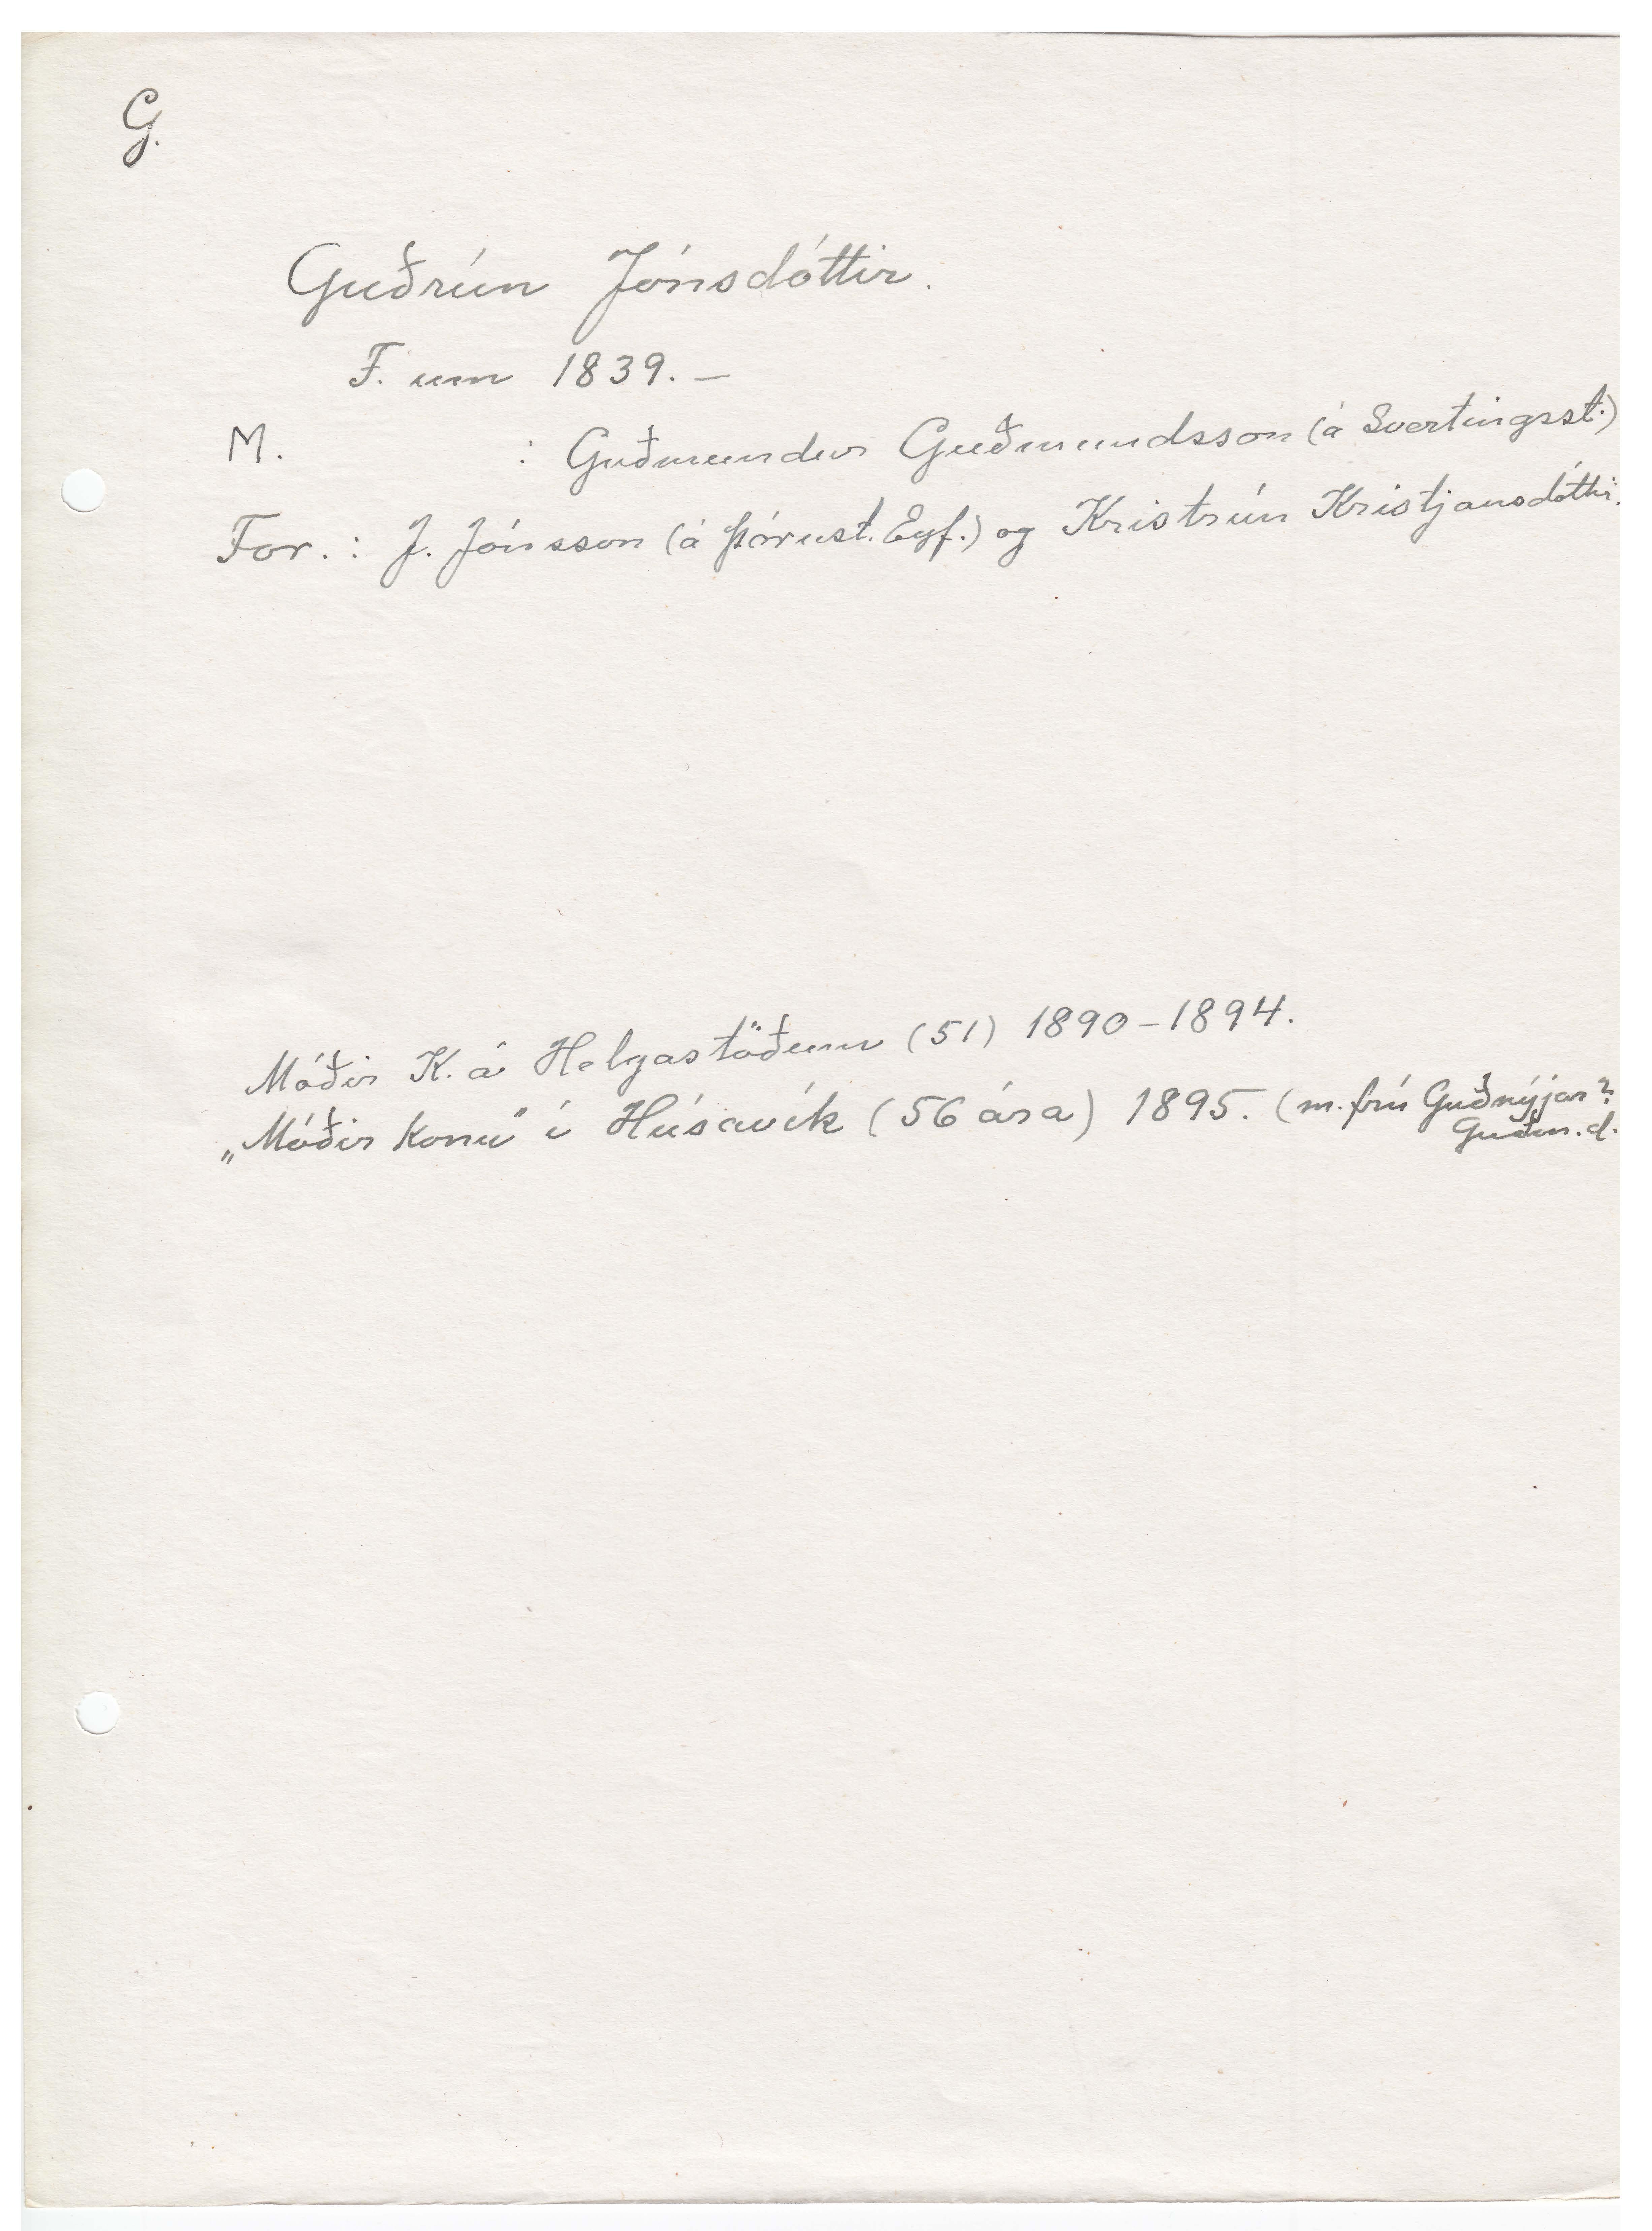 G.
Guðrún Jónsdóttir.
F. um 1839. –
M. : Guðmundur Guðmundsson (á Svertingsst.)
For. : J. Jónsson (á Þórust. Eyf.) og Kristrún Kristjansdóttir.
Móðir K. á Helgastöðum (51) 1890–1894.
„Móðir konu" í Húsavík (56 ára) 1895. (m. frú Guðnýjar?
Guðm.d.